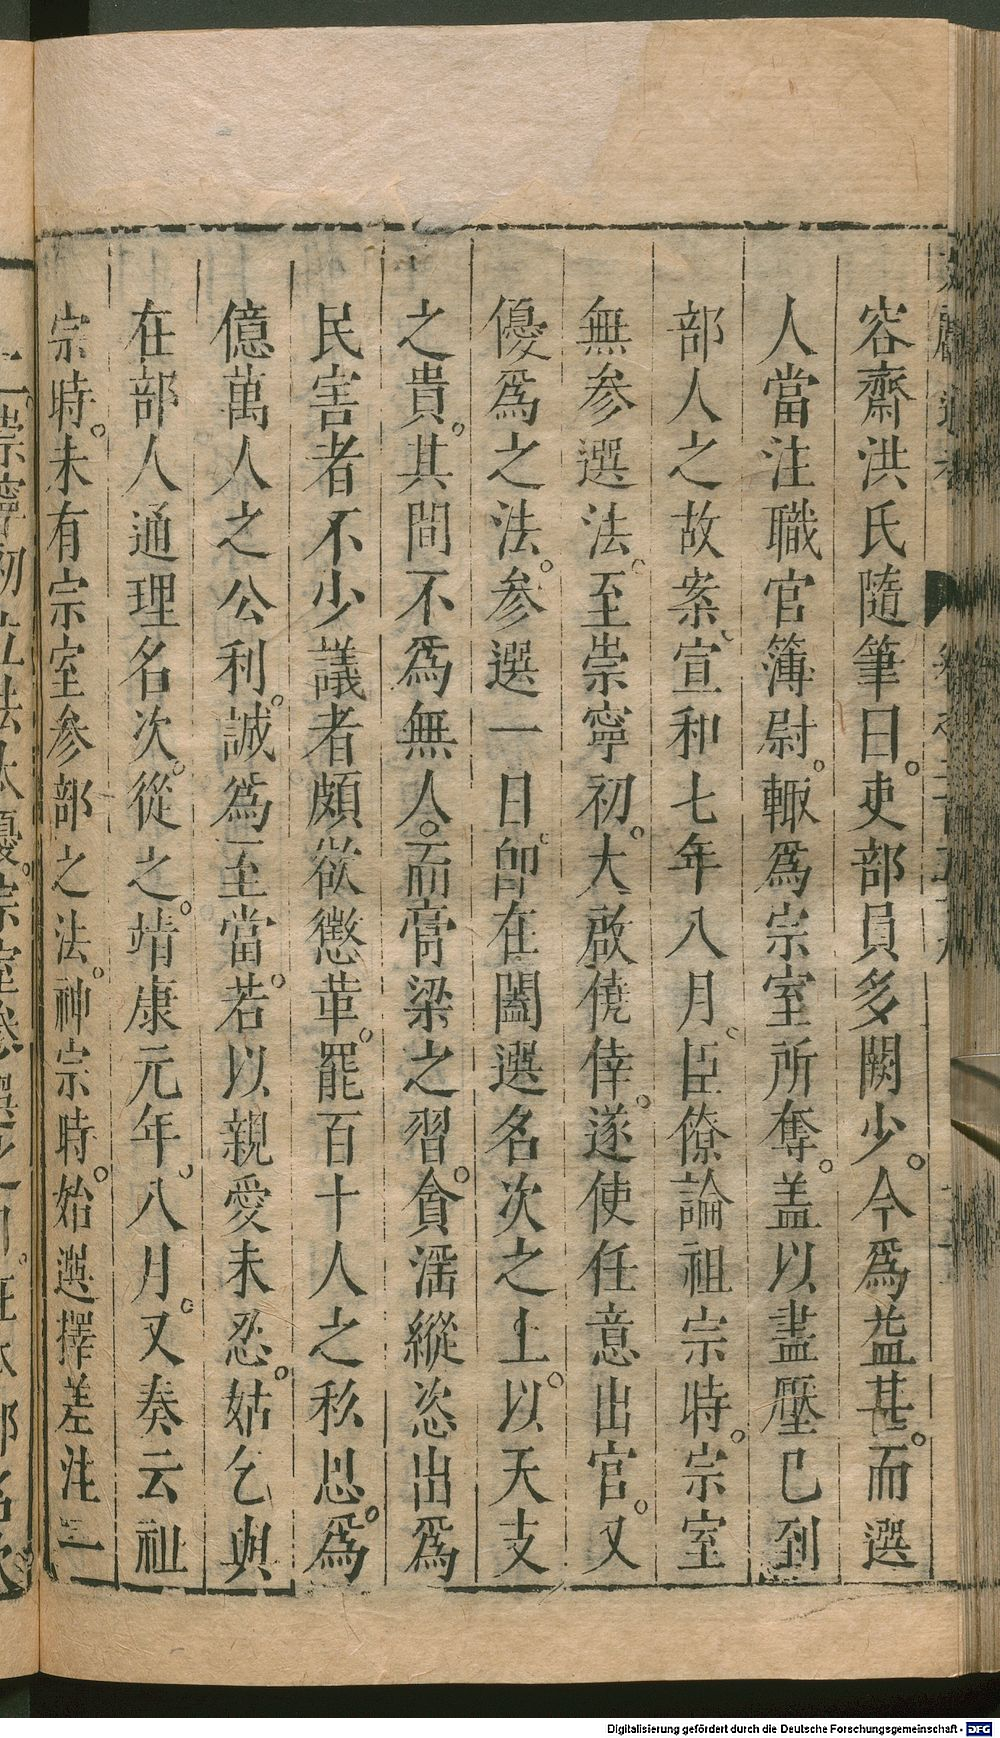 容齋洪氏隨筆曰。吏部員多闕少。今爲益甚。而選
人當注職官簿尉。輙爲宗室所奪。盖以盡壓已到
部人之故案。宣和七年八月。臣僚論祖宗時。宗室
無参選法。至崇寧初。大啟僥倖。遂使任意出官。又
優爲之法。参選一日。卽在闔選名次之上。以天支
之貴。其間不爲無人。而膏梁之習。貪濡縱恣出爲
民害者不少議者頗欲懲革。罷百十人之私恩。爲
億萬人之公利。誠爲至當。若以親愛未忍。姑乞與
在部人通理名次。從之。靖康元年。八月。又奏云祖
宗時。未有宗室参部之法。神宗時。始選擇差注一
二。崇寧初立法太優。宗室参選之日。在本部名次。
Digitalisierung gefördert durch die Deutsche Forschungsgemeinschaft - DFG